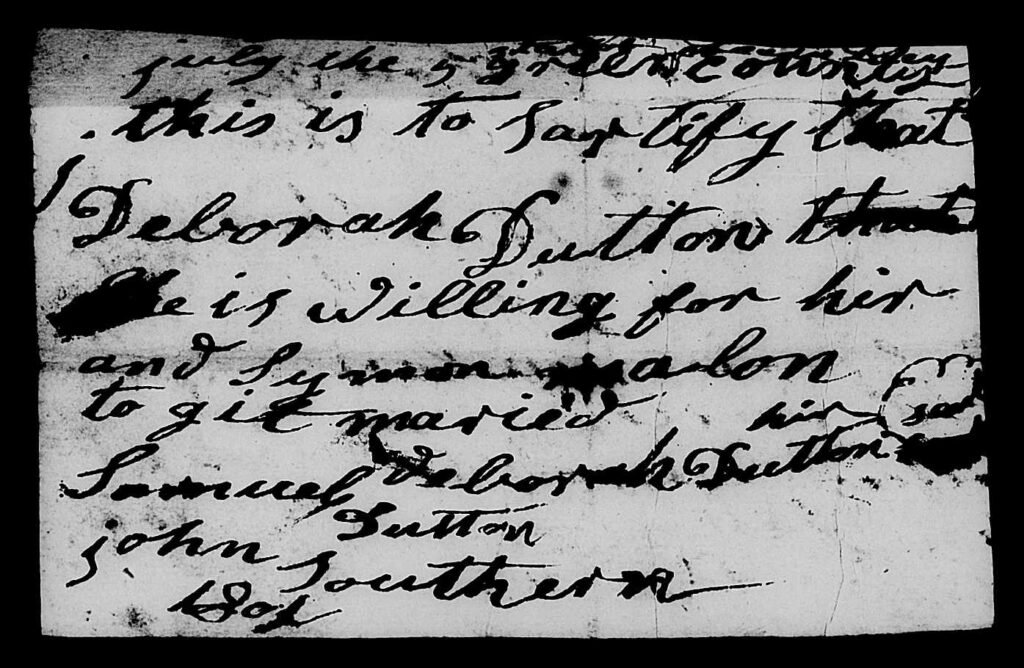 july the 5 green county
this is to sartify that
Deborah Dutton that
he is willing for hir
and Symon malon
to git maried hir
Samuel deborah Dutton
Dutton
john southern
1801